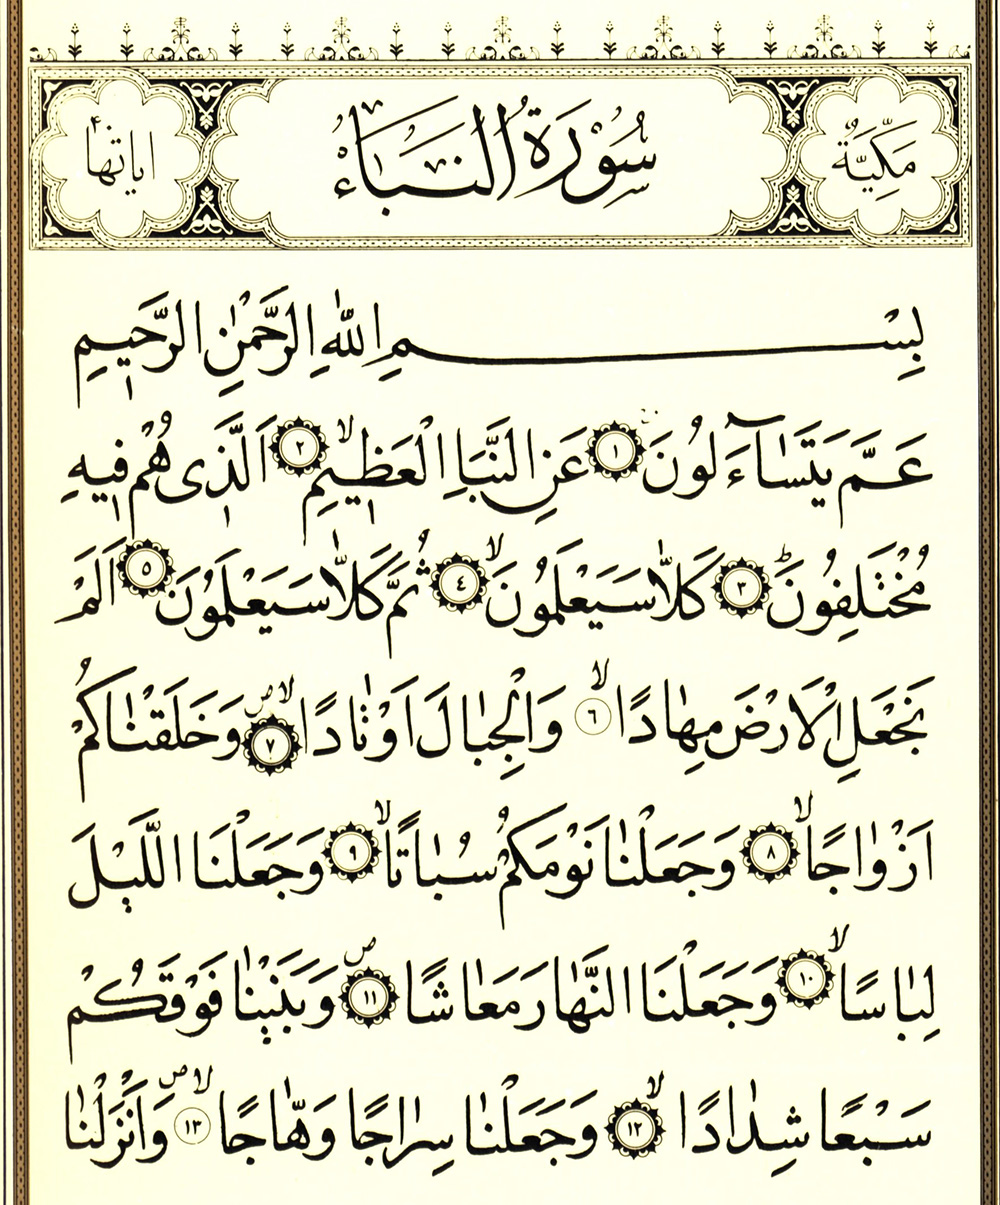 مَكِّيَّةٌ سُورَةُ النَّبَأِ اياتها ٤٠
بِسْمِ اللّٰهِ الرَّحْمٰنِ الرَّحٖيمِ
عَمَّ يَتَسَٓاءَلُونَ ١ عَنِ النَّبَاِ الْعَظٖيمِۙ ٢ اَلَّذٖى هُمْ فٖيهِ
مُخْتَلِفُونَؕ ٣ كَلَّا سَيَعْلَمُونَۙ ٤ ثُمَّ كَلَّا سَيَعْلَمُونَ ٥ اَلَمْ
نَجْعَلِ الْاَرْضَ مِهَادًاۙ ٦ وَالْجِبَالَ اَوْتَادًاۙۖ ٧ وَخَلَقْنَاكُمْ
اَزْوَاجًاۙ ٨ وَجَعَلْنَا نَوْمَكُمْ سُبَاتًاۙ ٩ وَجَعَلْنَا الَّيْلَ
لِبَاسًاۙ ١٠ وَجَعَلْنَا النَّهَارَ مَعَاشًاۖ ١١ وَبَنَيْنَا فَوْقَكُمْ
سَبْعًا شِدَادًاۙ ١٢ وَجَعَلْنَا سِرَاجًا وَهَّاجًاۙۖ ١٣ وَاَنْزَلْنَا